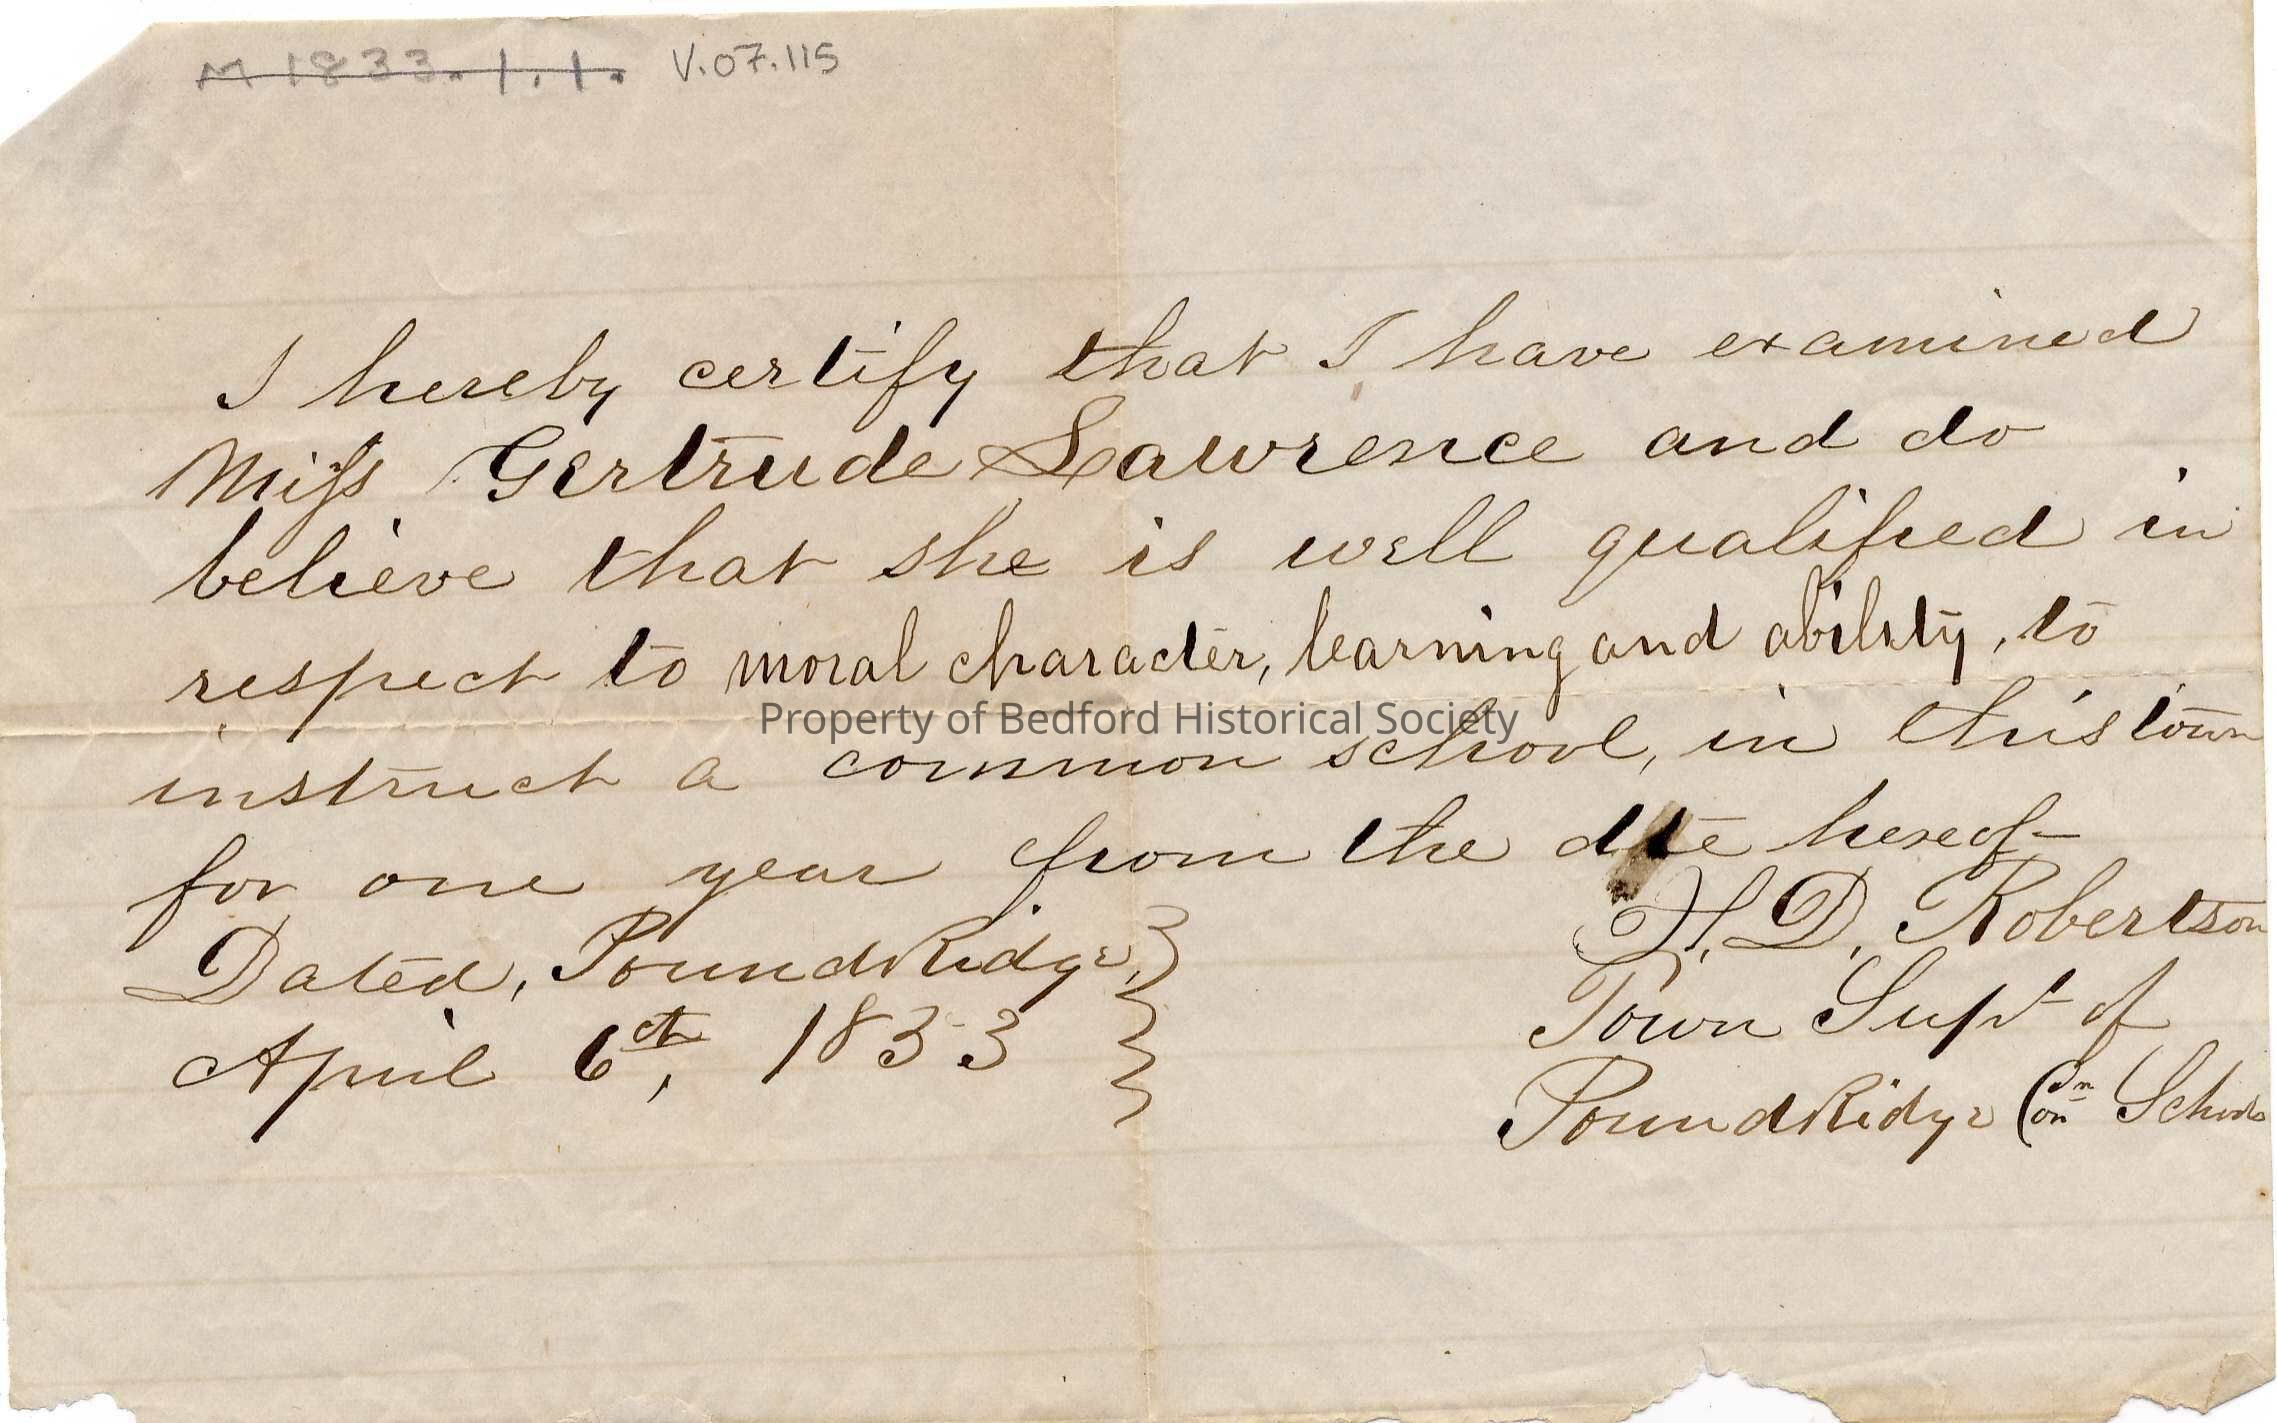 M 1833.1.1. V.07.115
I hereby certify that I have examined
Miss Gertrude Lawrence and do
believe that she is well qualified in
respect to moral character, learning and ability, to
instruct a common school, in this town
Property of Bedford Historical Society
for one year from the date hereof
H. D. Robertson
Dated, PoundRidge,
Town Supt of
April 6th, 1833
PoundRidge Schools